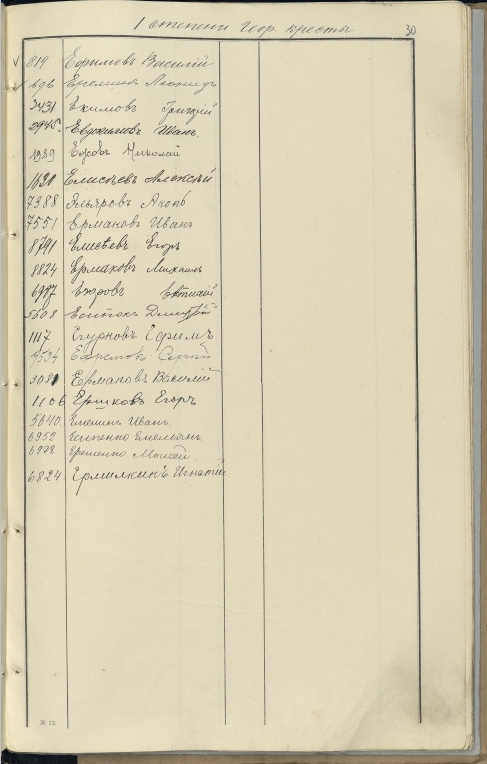 1 степени Геор. кресты 30
819 Ефимовъ Василій
696 Еремин Леонидъ
3431 Екимовъ Григорій
2945 Евдокимовъ Иванъ
1939 Ежовъ Николай
1630 Елисѣевъ Алексѣй
7388 Эльяровъ Акопъ
7551 Ермаковъ Иванъ
8791 Елисѣевъ Егоръ
8824 Ермаковъ Михаилъ
6987
5608 Дмитрій
1117 Егурновъ Ефимъ
7534 Ефремовъ Сергѣй
3081 Ермаковъ Василій
1106 Ершковъ Егоръ
5640 Емелинъ Иванъ
6952 Есипенко Емельянъ
6978 Еременко Моисей
6824 Ермилкинъ Игнатій
№ 13.